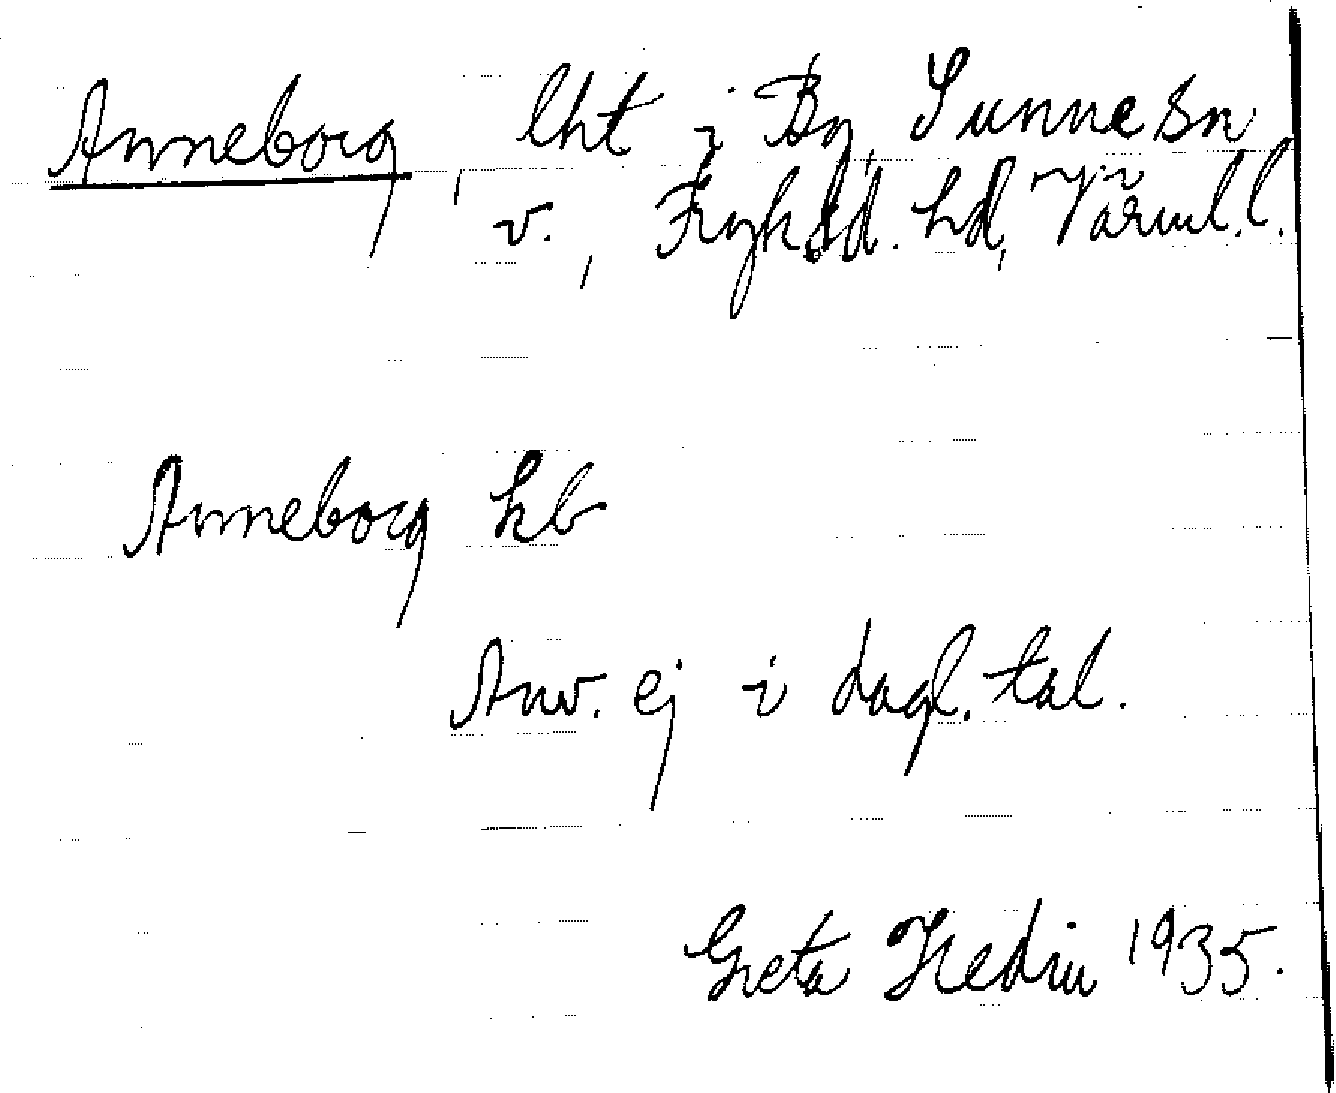 Anneborg, lht i By, Sunne sn
v., Fryksd. hd, Värml. l.
Anneborg hb
Anv. ej i dagl. tal.
Greta Hedin 1935.